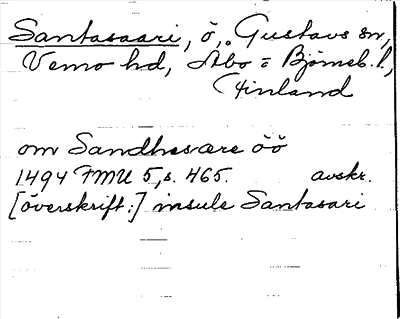 Santasaari, ö, Gustavs sn,
Vemo hd, Åbo = Björneb. l.,
Finland
om Sandhesare öö
1494 FMU 5, s. 465. avskr.
[överskrift:] insule Santasari